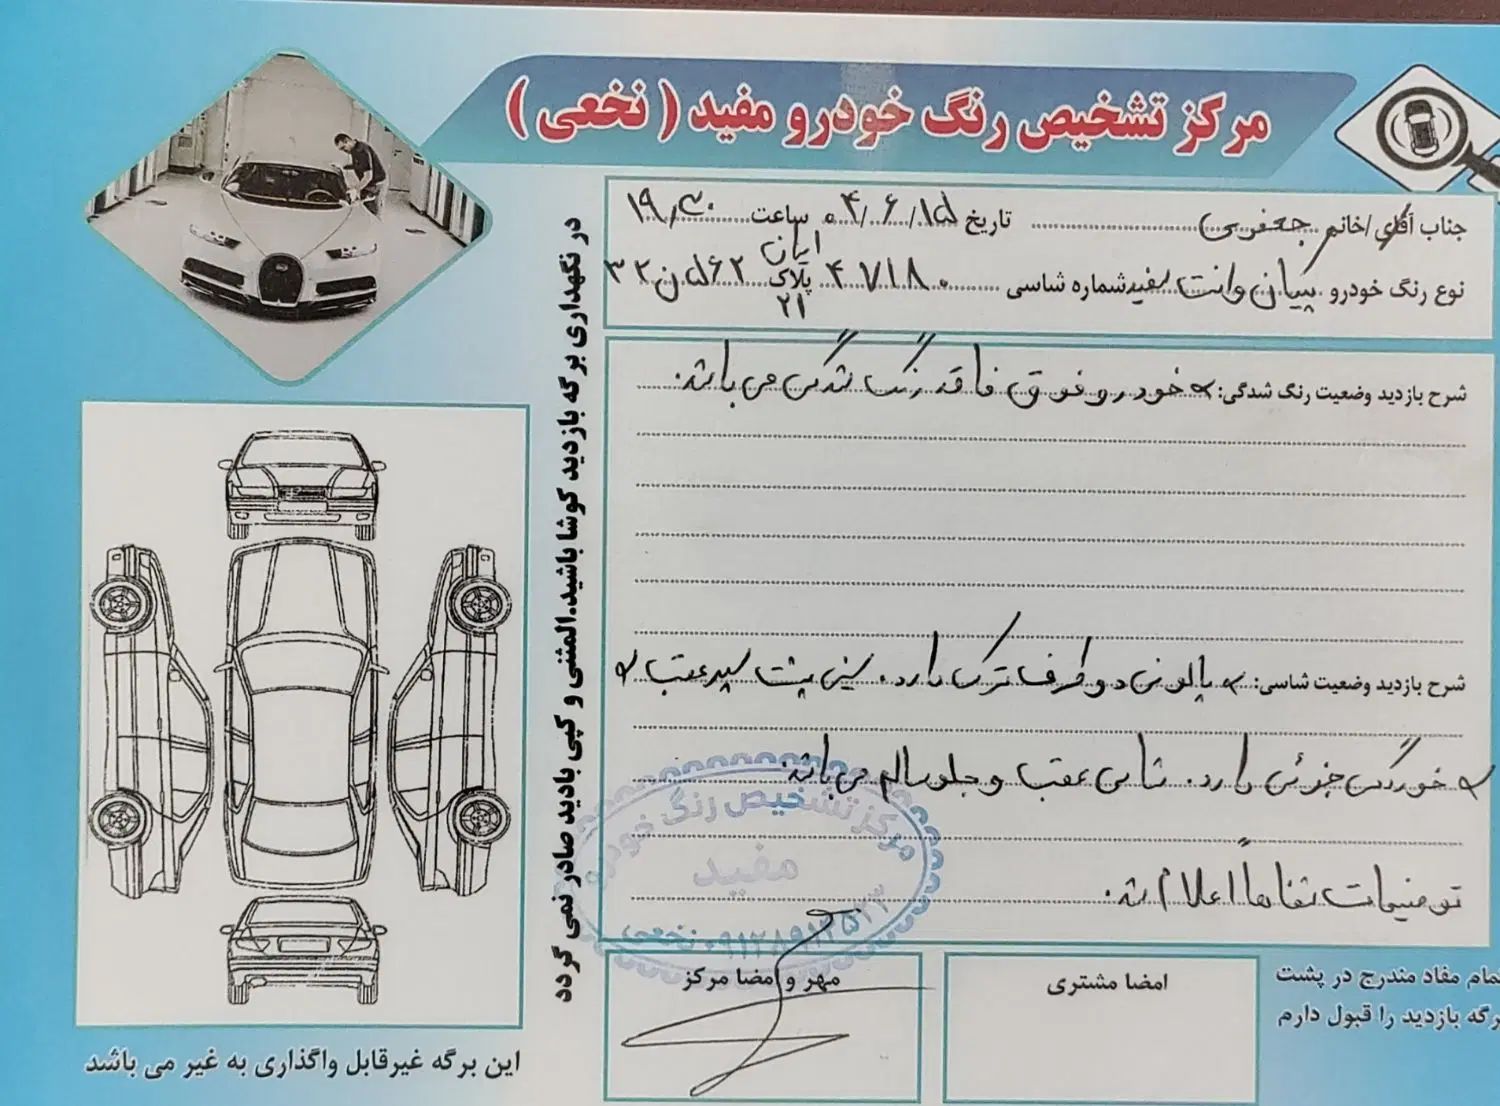 مرکز تشخیص رنگ خودرو مفید ( نخعی )
جناب آقای/خانم جعفری تاریخ ۰۴/۶/۱۵ ساعت ۱۹/۳۰
نوع رنگ خودرو پیکان وانت سفید شماره شاسی ۴۷۱۸۰ پلاک ۶۲ ۳۲ ایران ۲۱
شرح بازدید وضعیت رنگ شدگی: خودرو فوق فاقد رنگ شدگی می باشد.
شرح بازدید وضعیت شاسی: پالونی دو طرف ترک دارد. سینی پشت سپر عقب
خوردگی جزئی دارد. شاسی عقب و جلو سالم می باشد.
توضیحات شفاهاً اعلام شد.
مرکز تشخیص رنگ خودرو
مفید
نخعی
مهر و امضا مرکز
امضا مشتری
تمام مفاد مندرج در پشت
برگه بازدید را قبول دارم
در نگهداری برگه بازدید کوشا باشید.المثنی و کپی بادید صادر نمی گردد
این برگه غیرقابل واگذاری به غیر می باشد